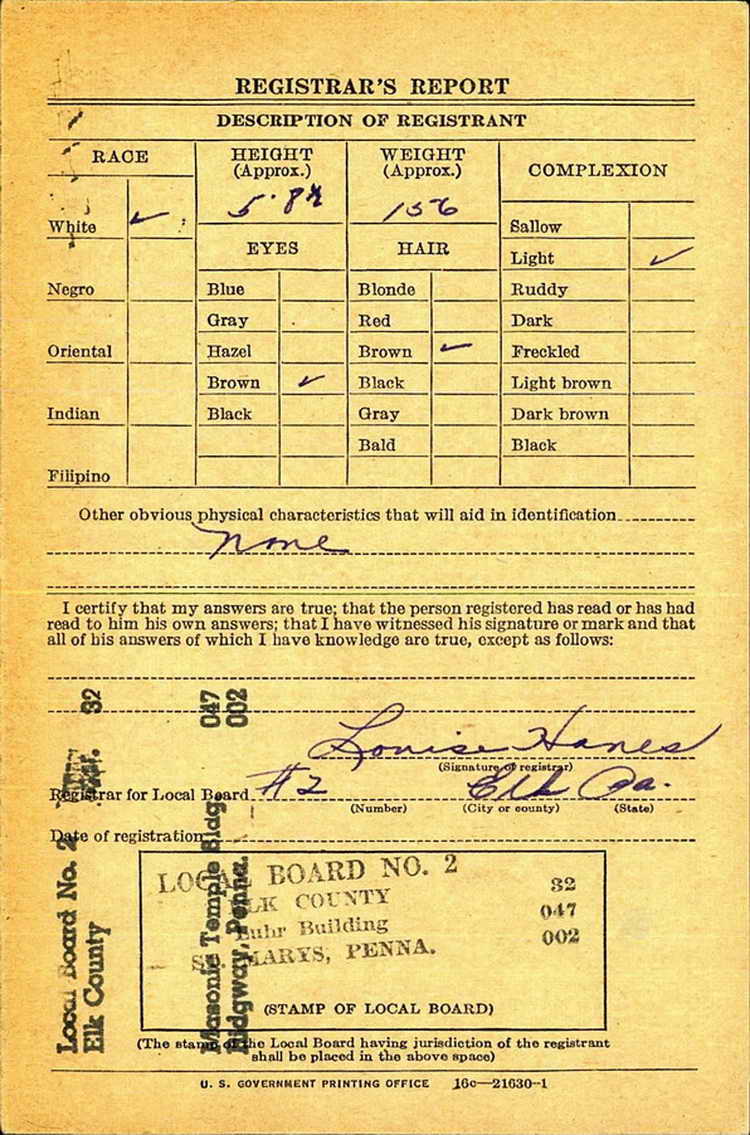 REGISTRAR'S REPORT
DESCRIPTION OF REGISTRANT
RACE
HEIGHT
(Approx.)
WEIGHT
(Approx.)
COMPLEXION
5' 8½
156
White ✓
Sallow
EYES
HAIR
Light ✓
Negro
Blue
Blonde
Ruddy
Gray
Red
Dark
Oriental
Hazel
Brown ✓
Freckled
Brown ✓
Black
Light brown
Indian
Black
Gray
Dark brown
Bald
Black
Filipino
Other obvious physical characteristics that will aid in identification
None
I certify that my answers are true; that the person registered has read or has had
read to him his own answers; that I have witnessed his signature or mark and that
all of his answers of which I have knowledge are true, except as follows:
Louise Hanes
(Signature of registrar)
Registrar for Local Board #2 Elk Pa.
(Number) (City or county) (State)
Date of registration
LOCAL BOARD NO. 2 32
ELK COUNTY 047
Luhr Building 002
ST. MARYS, PENNA.
(STAMP OF LOCAL BOARD)
(The stamp of the Local Board having jurisdiction of the registrant
shall be placed in the above space)
U. S. GOVERNMENT PRINTING OFFICE 16c—21630-1
Local Board No. 2 32
Elk County
Masonic Temple Bldg. 047
Ridgway, Penna. 002